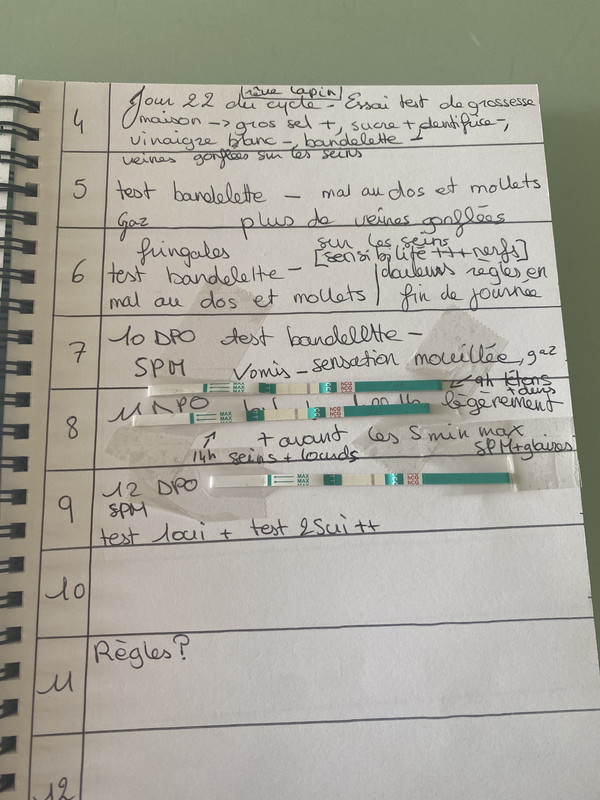 rêve lapin
4
Jour 22 du cycle - Essai test de grossesse
maison → gros sel +, sucre + dentifrice -,
vinaigre blanc -, bandelette -
veines gonflées sur les seins
5
test bandelette - mal au dos et mollets
Gaz plus de veines gonflées
sur les seins
6
fringales [sensibilité +++ nerfs]
test bandelette - douleurs règles en
mal au dos et mollets / fin de journée
7
10 DPO test bandelette -
SPM Vomis - sensation mouillée, gaz
MAX
MAX
MAX
HCG
HCG
HCG
← 9h
8
11 DPO légèrement
MAX
MAX
MAX
HCG
HCG
HCG
14h
+ avant les 5 min max
seins + lourds SPM + glaires
9
12 DPO
MAX
MAX
MAX
HCG
HCG
HCG
SPM
test 10ui + test 25ui ++
10
11
Règles ?
12